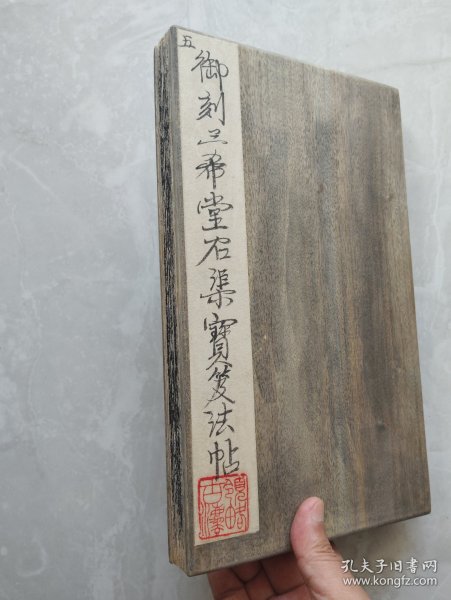 五
御刻三希堂石渠寶笈法帖
孔夫子旧书网
www.kongfz.com